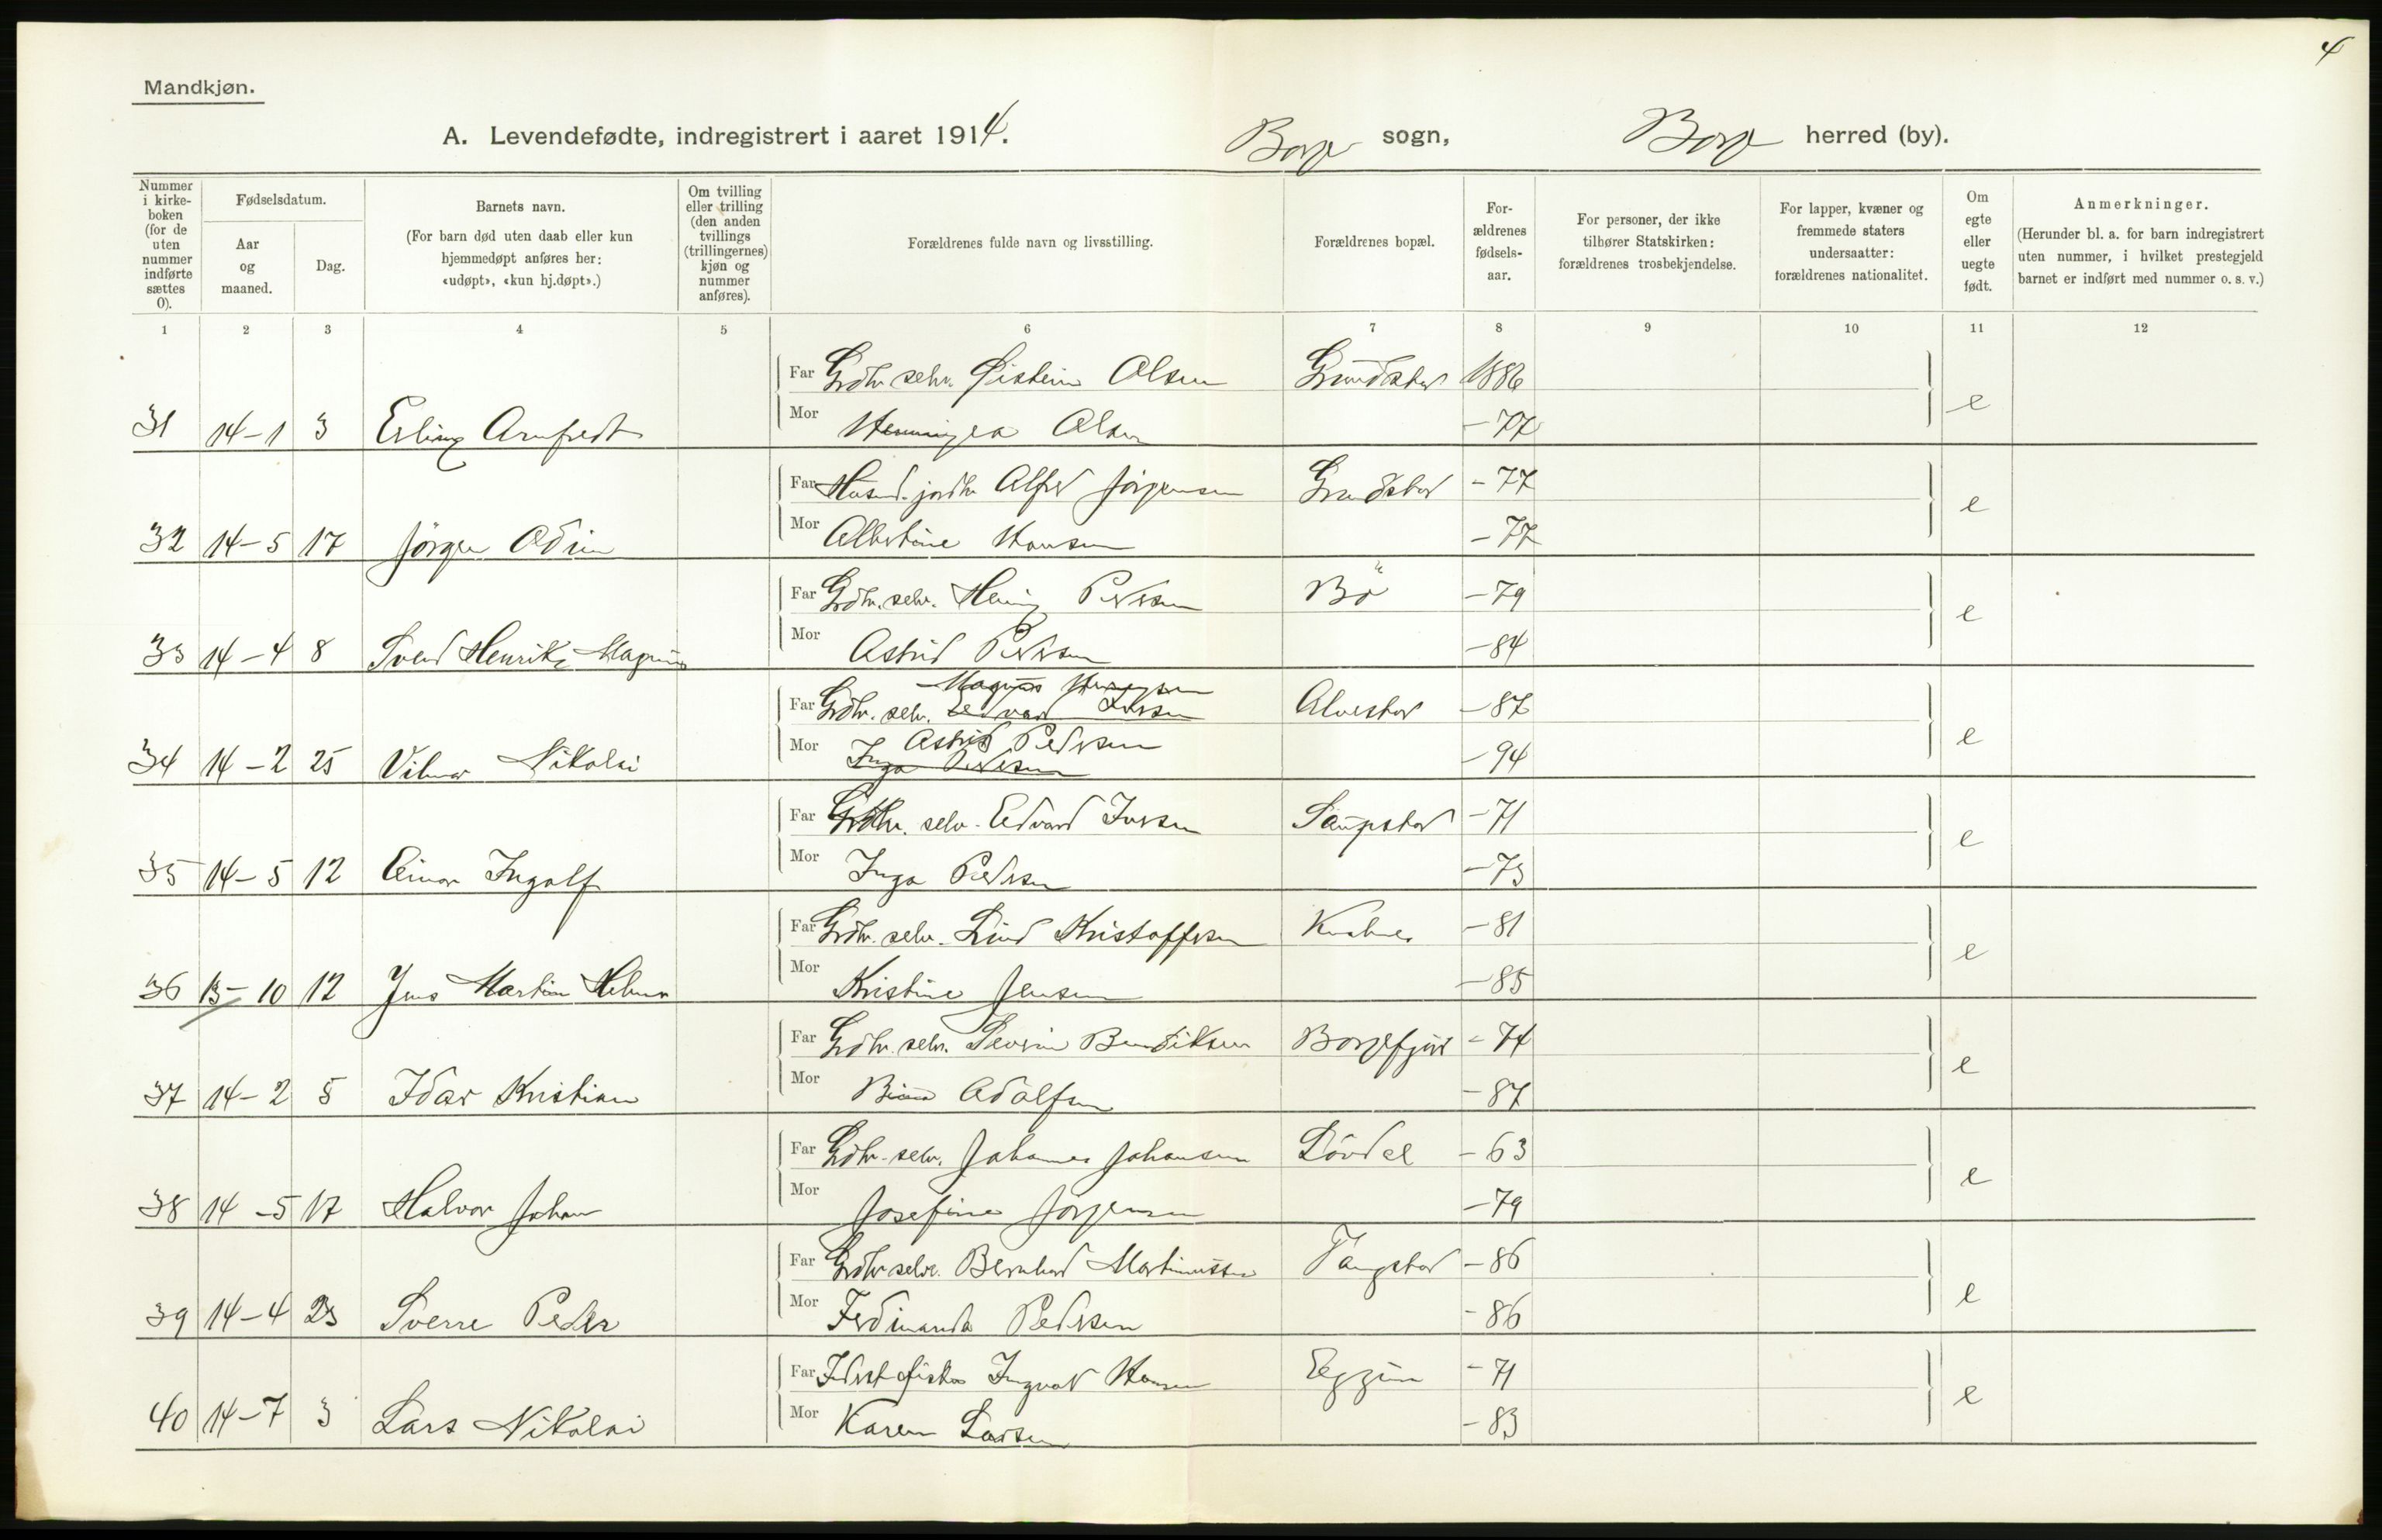 4
Mandkjøn.
A. Levendefødte, indregistrert i aaret 1914. Borge sogn, Borge herred (by).
Nummer i kirke-boken (for de uten nummer indførte sættes 0).
Fødselsdatum.
Aar og maaned.
Dag.
Barnets navn.
(For barn død uten daab eller kun hjemmedøpt anføres her: «udøpt», «kun hj.døpt».)
Om tvilling eller trilling (den anden tvillings (trillingernes) kjøn og nummer anføres).
Forældrenes fulde navn og livsstilling.
Forældrenes bopæl.
For-ældrenes fødsels-aar.
For personer, der ikke tilhører Statskirken: forældrenes trosbekjendelse.
For lapper, kvæner og fremmede staters undersaatter: forældrenes nationalitet.
Om egte eller uegte født.
Anmerkninger.
(Herunder bl. a. for barn indregistrert uten nummer, i hvilket prestegjeld barnet er indført med nummer o. s. v.)
1 2 3 4 5 6 7 8 9 10 11 12
Far Grdbr. selv. Øistein Olsen Grundstad 1886
31 14-1 3 Erling Arnfredt Mor Olsen -77 e
Far Jørgensen Grundstad -77
32 14-5 17 Jörgen Odin Mor Albertine Hansen -77 e
Far Grdbr. selv. Pedersen Bö -79
33 14-4 8 Svend Henrik Magnus Mor Astrid Pedersen -84 e
Magnus
Far Grdbr. selv. Edvard Iversen Alvestad -87
Astrid Pedersen
34 14-2 25 Nikolai Mor Inga Pedersen -94 e
Far Grdbr. selv. Edvard Iversen Saupstad -71
35 14-5 12 Einar Ingolf Mor Inga Pedersen -73 e
Far Grdbr. selv. Kristoffersen -81
36 13-10 12 Jens Martin Mor Kristine Jensen -85 e
Far Grdbr. selv. Severin Bendiksen Borgefjord -74
37 14-2 5 Idar Kristian Mor Adolfsen -87 e
Far Grdbr. selv. Johannes Johansen Lövdal -63
38 14-5 17 Halvor Johan Mor Josefine Jörgensen -79 e
Far Grdbr. selv. Bernhard Martinussen Tangstad -86
39 14-4 23 Sverre Peder Mor Ferdinanda Pedersen -86 e
Far fisker Ingvald Hansen Eggum -71
40 14-7 3 Lars Nikolai Mor Karen Larsen -83 e